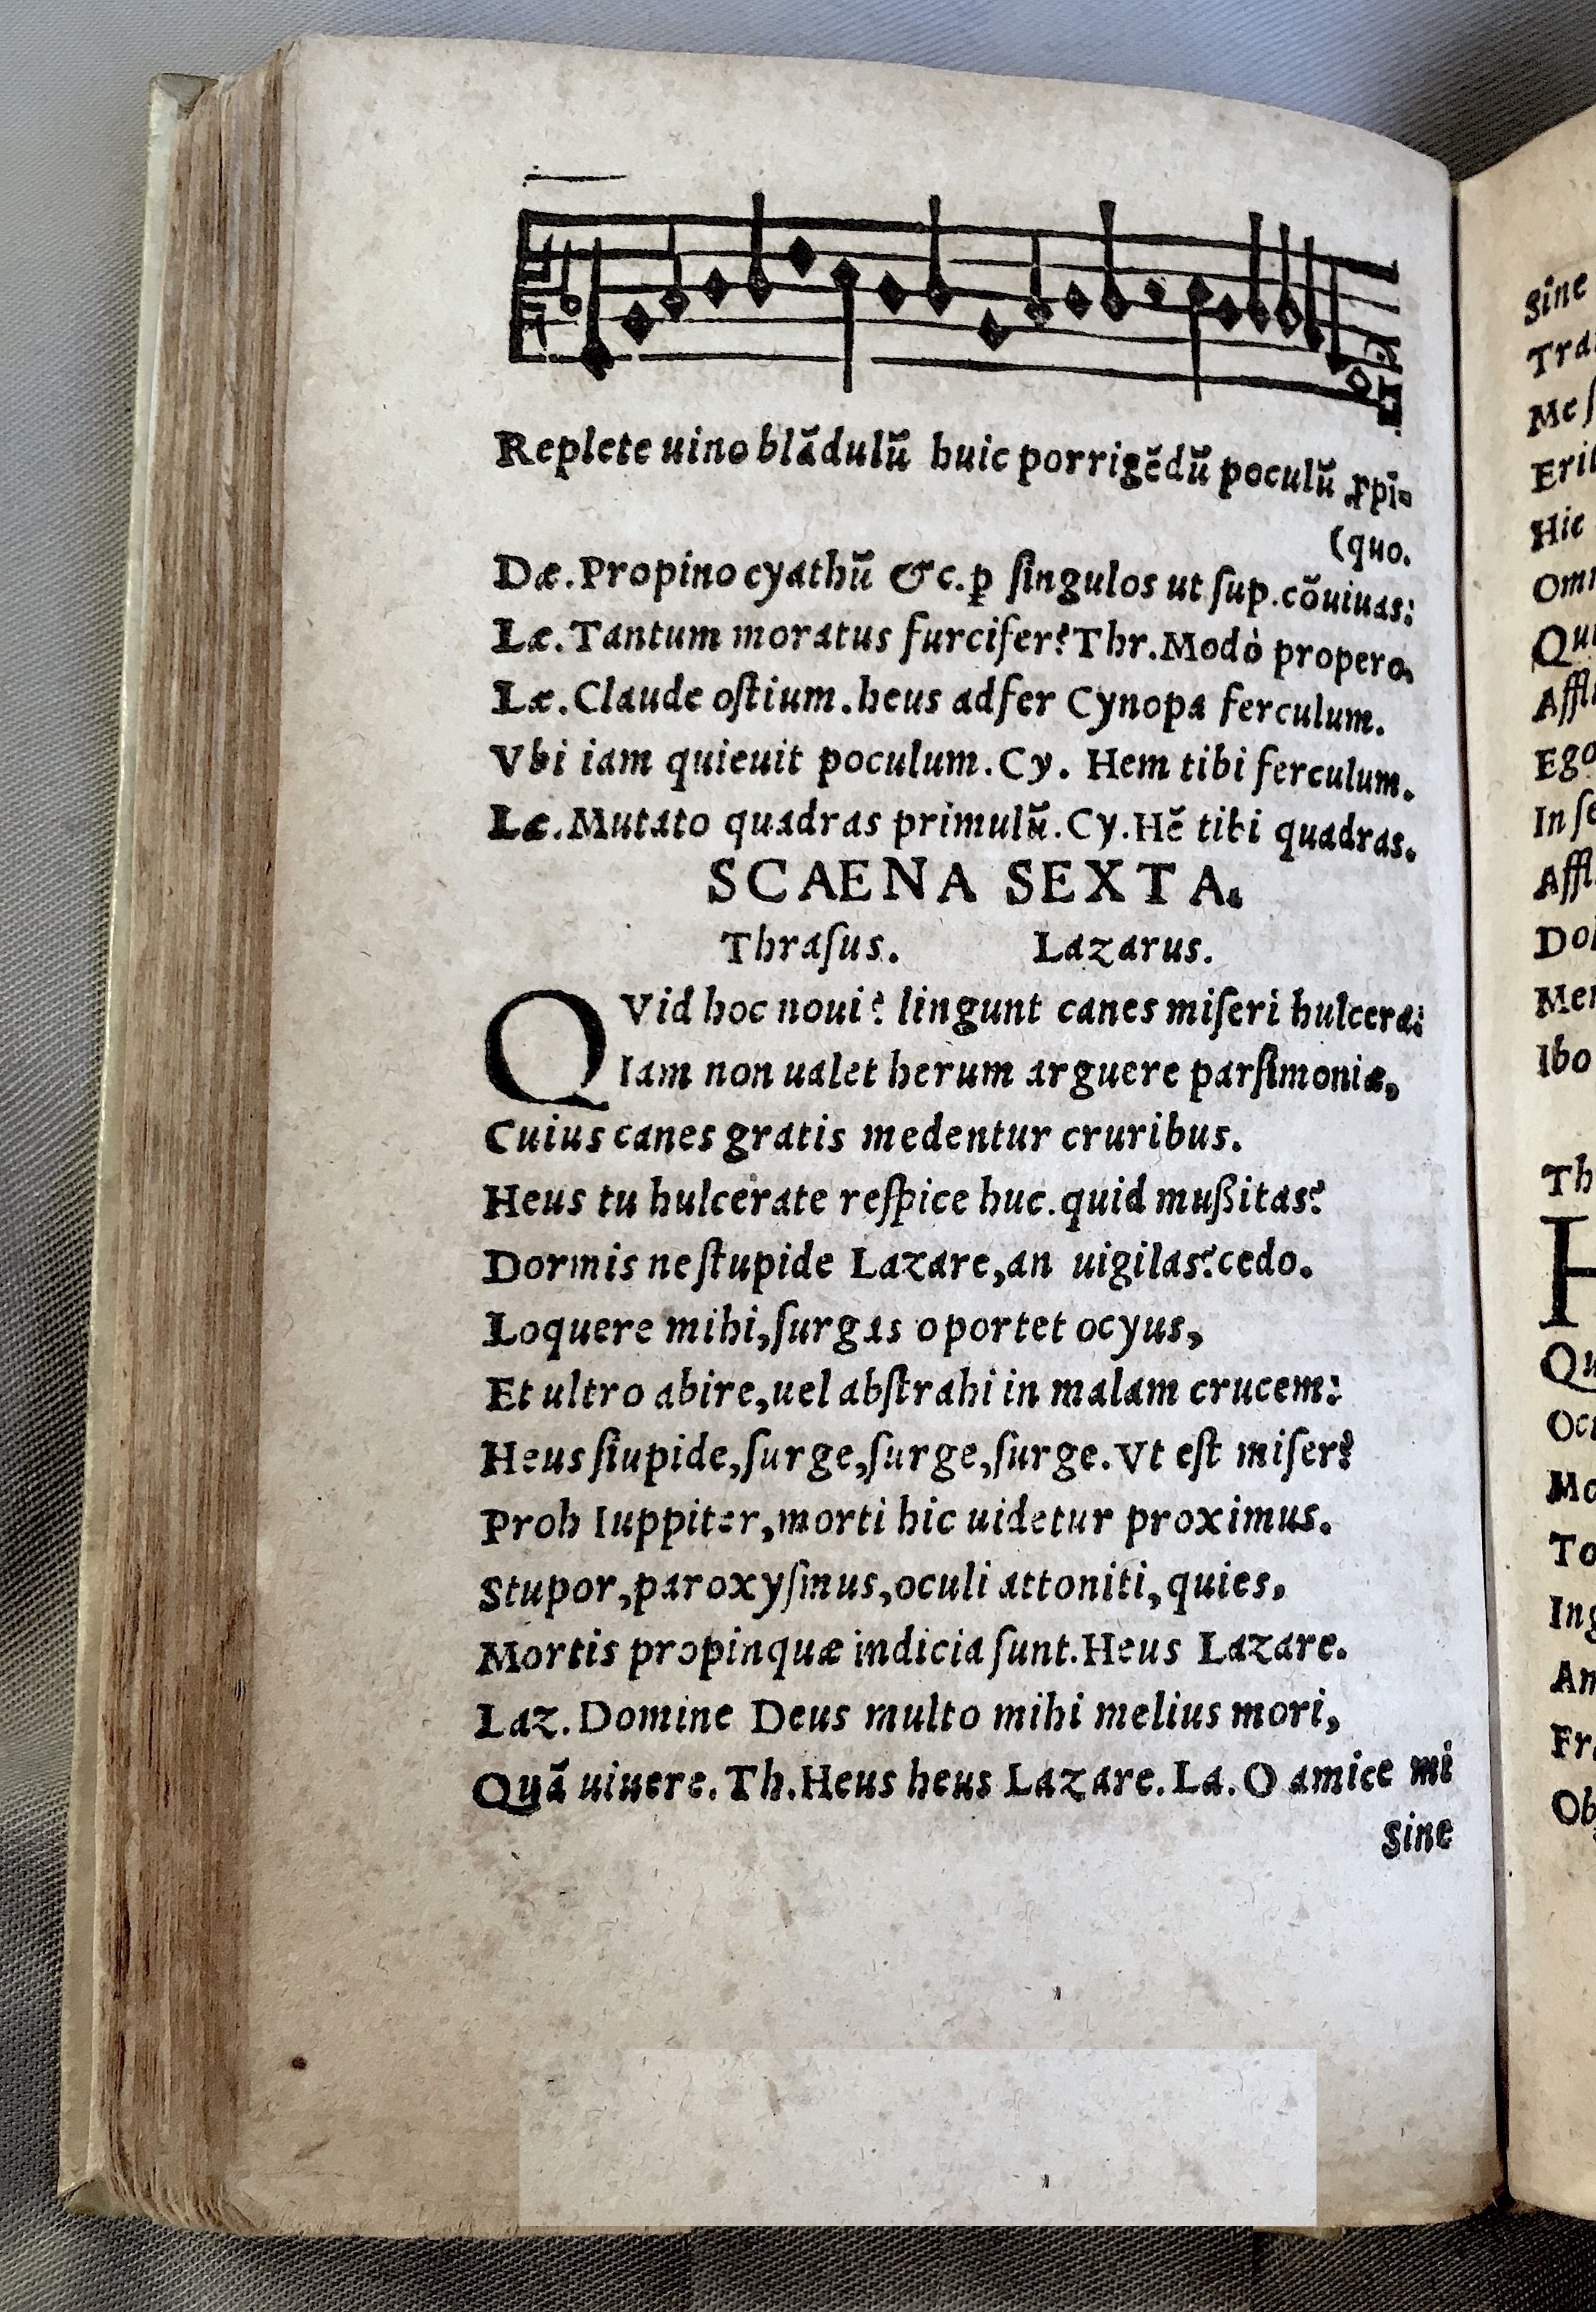 Replete uino blãdulũ huic porrigẽdũ poculũ ꝓpi-
(quo.
Dæ. Propino cyathũ &c. ꝑ ſingulos ut ſup. cõuiuas:
Læ. Tantum moratus furcifer? Thr. Modò propero.
Læ. Claude oſtium. heus adfer Cynopa ferculum.
Vbi iam quieuit poculum. Cy. Hem tibi ferculum.
Læ. Mutato quadras primulũ. Cy. Hẽ tibi quadras.
SCAENA SEXTA.
Thraſus. Lazarus.
QVid hoc noui? lingunt canes miſeri hulcera:
Iam non ualet herum arguere parſimoniæ,
Cuius canes gratis medentur cruribus.
Heus tu hulcerate reſpice huc. quid mußitas?
Dormis ne ſtupide Lazare, an uigilas? cedo.
Loquere mihi, ſurgas oportet ocyus,
Et ultro abire, uel abſtrahi in malam crucem:
Heus ſtupide, ſurge, ſurge, ſurge. Vt eſt miſer?
Proh Iuppiter, morti hic uidetur proximus.
Stupor, paroxyſmus, oculi attoniti, quies,
Mortis propinquæ indicia ſunt. Heus Lazare.
Laz. Domine Deus multo mihi melius mori,
Quã uiuere. Th. Heus heus Lazare. La. O amice mi
Sine
Sine
Hic
Ego
Ibo
Th